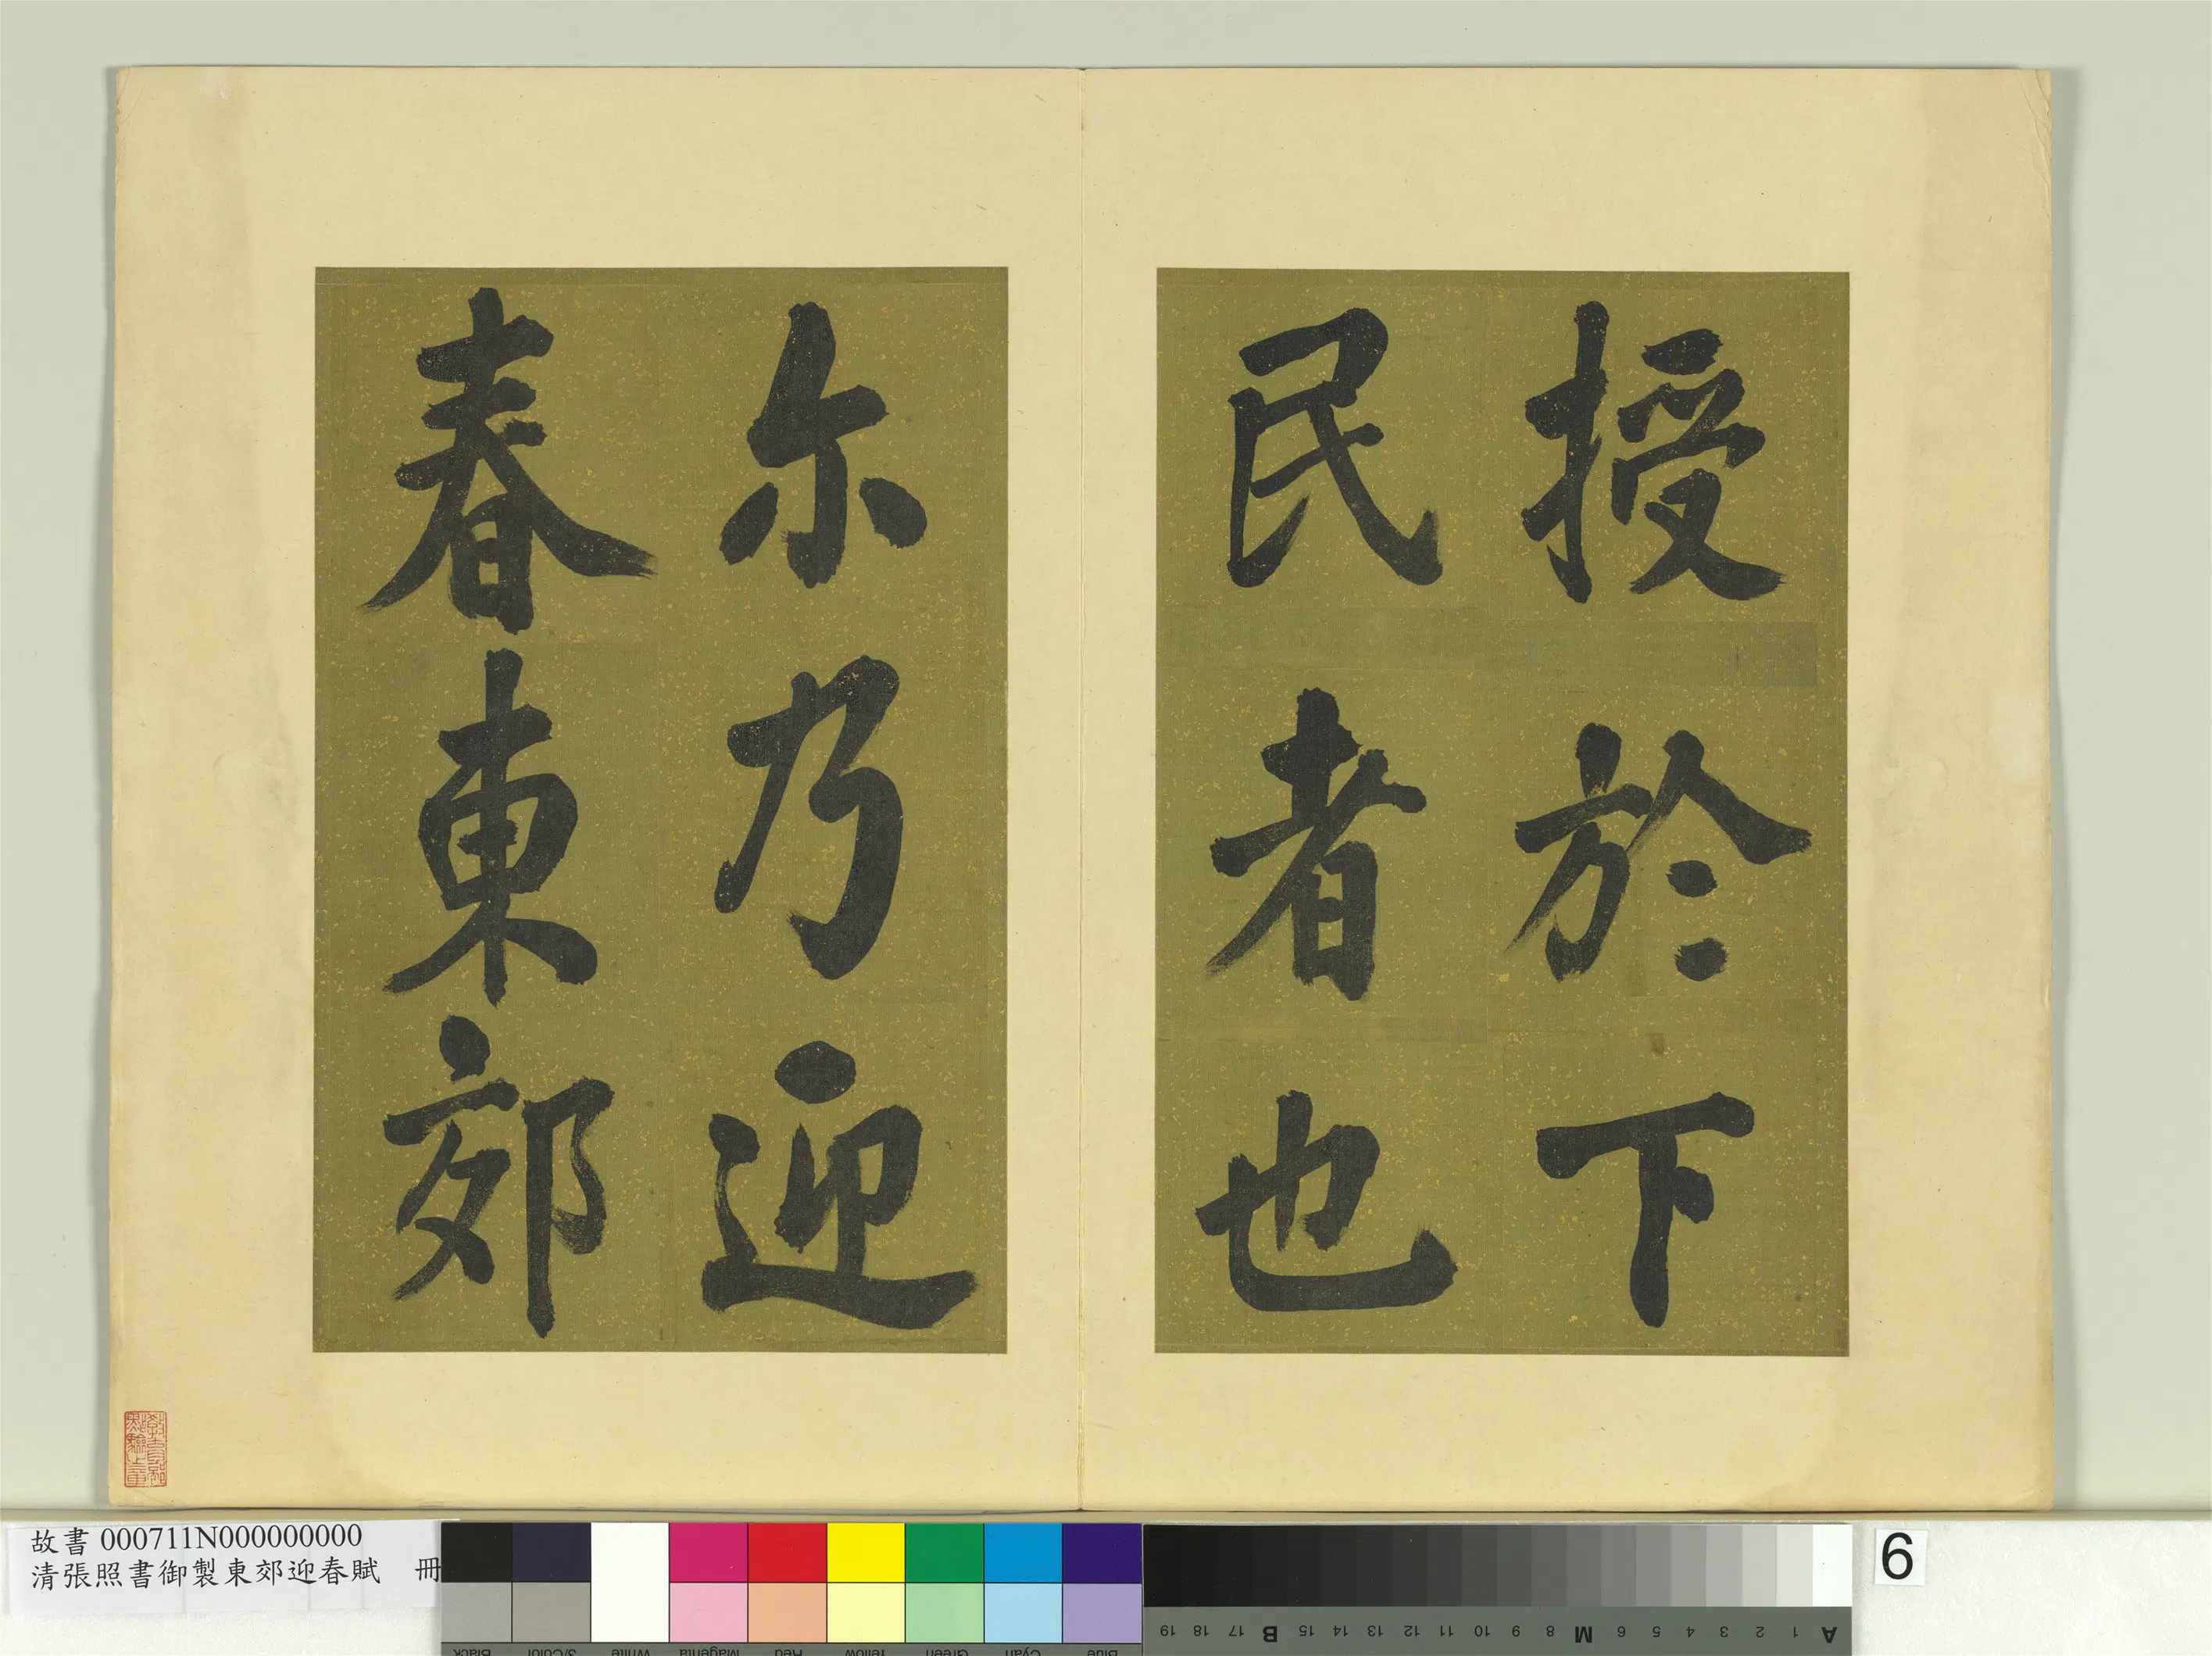 授於下
民者也
尓乃迎
春東郊
故書 000711N000000000
清張照書御製東郊迎春賦 冊
6
Black 3/Color White Magenta Red Yellow Green Cyan Blue
19 18 17 B 15 14 13 12 11 10 9 8 M 6 5 4 3 2 1 A